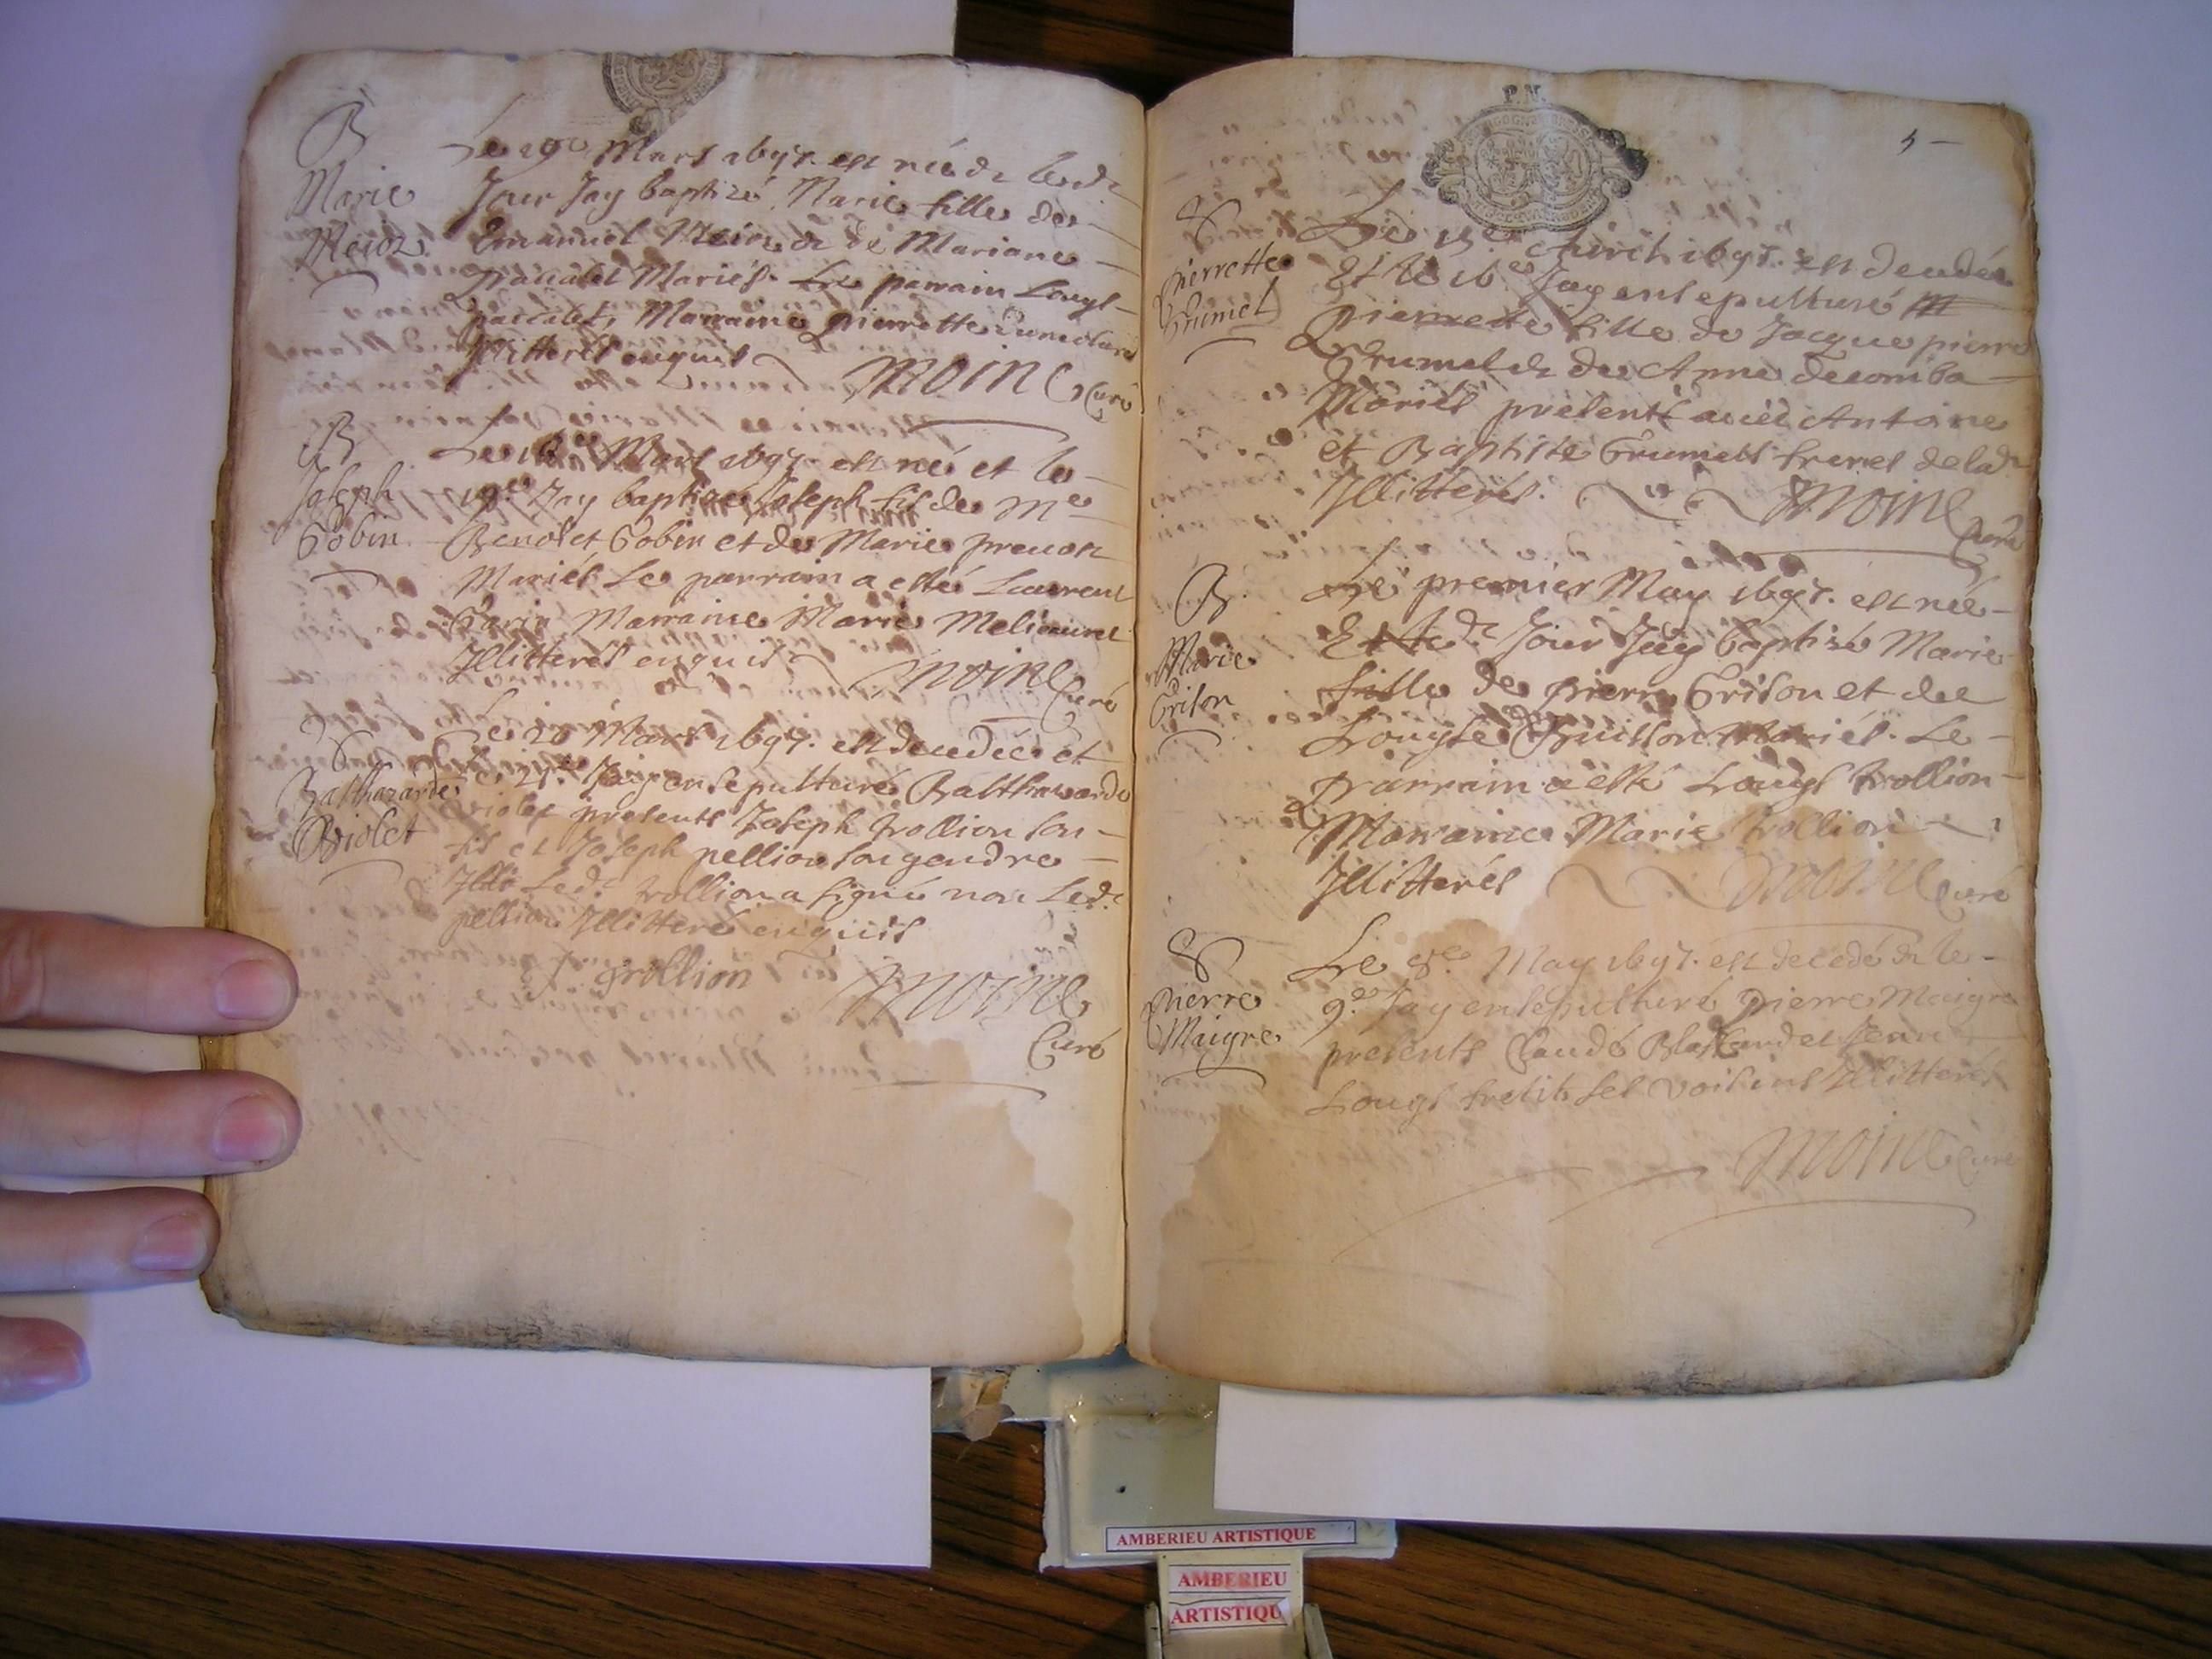 B
Marie
Meioz
Le 19e Mars 1697. est née et led.
Jour Jay baptizé Marie fille de
Emanuel et de Mariane
pascalet Mariés. Le parrain Louys
pascalet, Marraine pierrette
Jllitterés enquis
Moine Curé
B
Joseph
Gobin
Le Mars 1697. est né et le
19e Jay baptizé Joseph fils de Me
Benoict Gobin et de Marie prevost
Mariés Le parrain a esté Laurent
Garin Marraine Marie
Jllitterés enquis
Moine Curé
S
Balthazarde
Violet
Le 20 Mars 1697. est decedée et
le 21e Jay ensepulturé Balthazarde
Violet presents Joseph trollion son
fils et Joseph pellion son gendre
Led. trollion a signé non Led.
pellion Jllitteré enquis
J trollion
Moine
Curé
P.N.
5
S
Pierrette
Grumet
Le 15e Avril 1697. est decedée
Et le 16e Jay ensepulturé
pierrette fille de Jacque pierre
Grumet et de Anne decomba
Mariés presents avec Antoine
et Baptiste Grumets freres de lad.
Jllitterés.
Moine Curé
B
Marie
Grison
Le premier May 1697. est née
Et led. Jour Jay baptizé Marie
fille de pierre Grison et de
Louyse Guillon Mariés. Le
parrain a esté Louys trollion
Marraine Marie trollion
Jllitterés
Moine Curé
S
Pierre
Maigre
Le 8e May 1697. est decedé et le
9e Jay ensepulturé Pierre Maigre
presents Claude et Jean
Louys ses voisins Jllitterés
Moine Curé
AMBERIEU ARTISTIQUE
AMBERIEU
ARTISTIQU